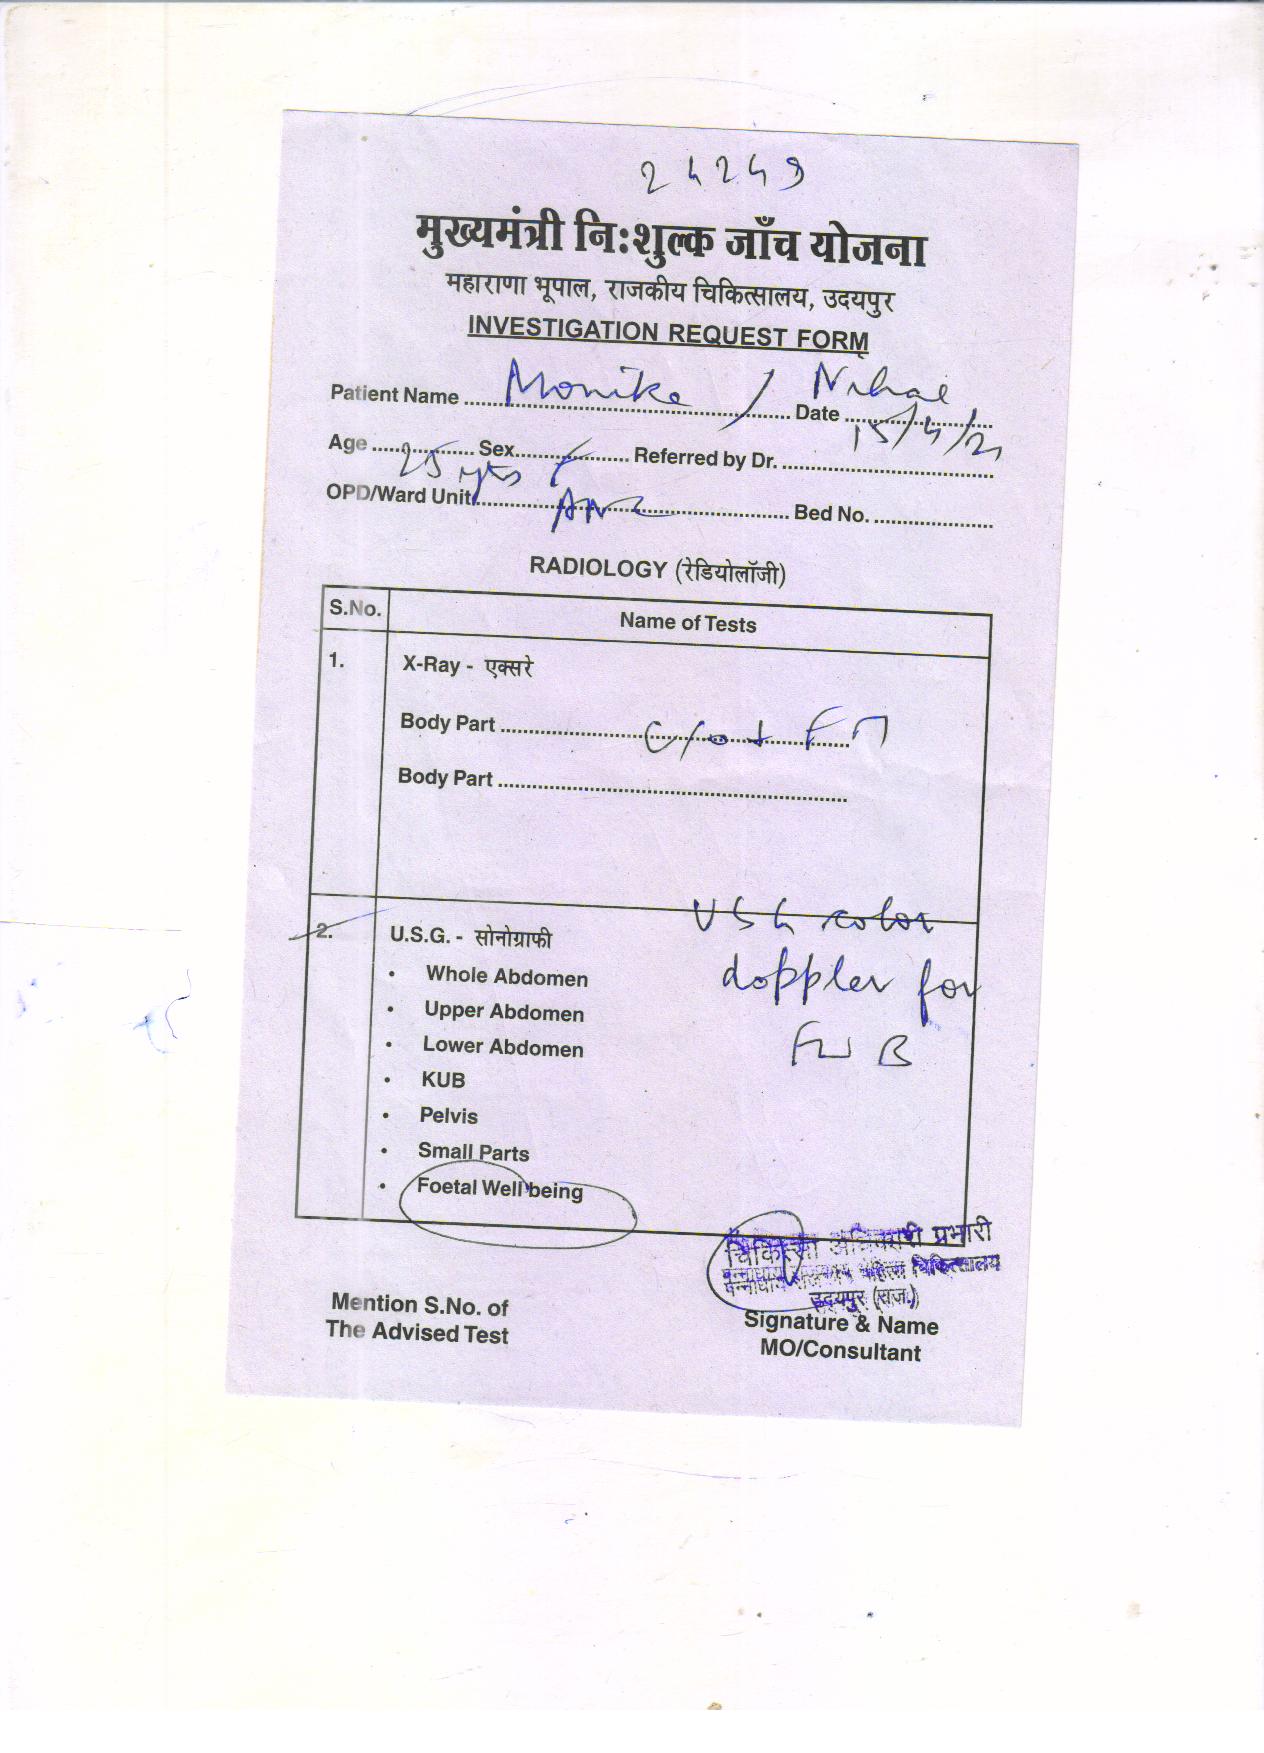 24249
मुख्यमंत्री नि:शुल्क जाँच योजना
महाराणा भूपाल, राजकीय चिकित्सालय, उदयपुर
INVESTIGATION REQUEST FORM
Patient Name Monika / Nihal Date 15/4/21
Age 25 yrs Sex F Referred by Dr.
OPD/Ward Unit ANC Bed No.
RADIOLOGY (रेडियोलॉजी)
S.No. Name of Tests
1. X-Ray - एक्सरे
Body Part c/o
Body Part
USG color
2. U.S.G. - सोनोग्राफी
doppler for
• Whole Abdomen
• Upper Abdomen
FWB
• Lower Abdomen
• KUB
• Pelvis
• Small Parts
• Foetal Well being
चिकित्सा अधिकारी प्रभारी
पन्नाधाय राजकीय महिला चिकित्सालय
उदयपुर (राज.)
Mention S.No. of
The Advised Test
Signature & Name
MO/Consultant